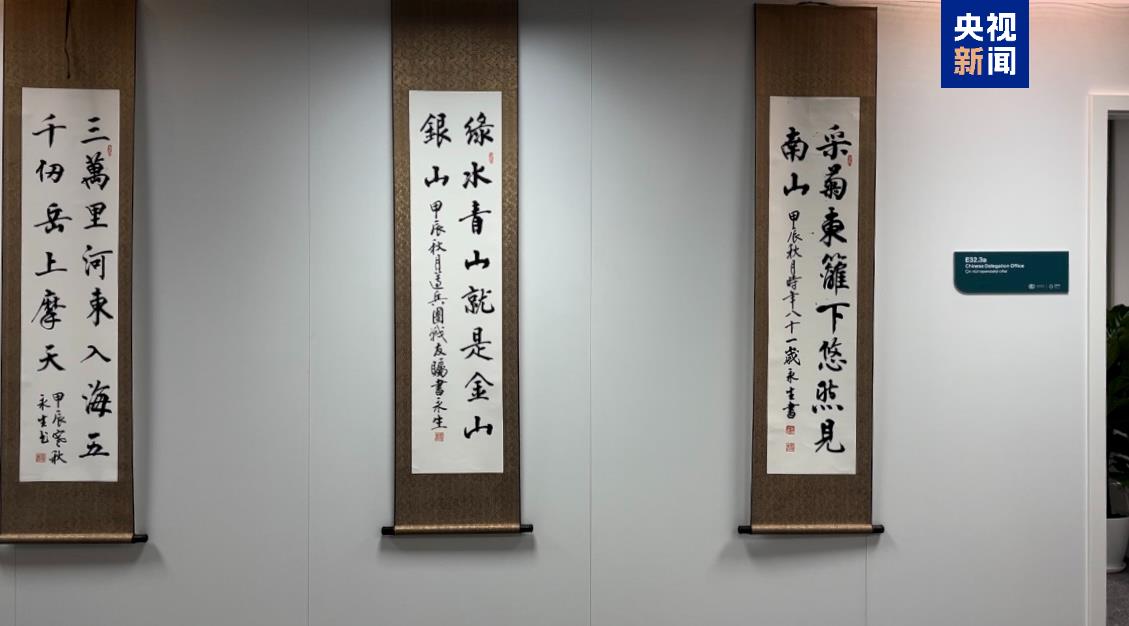 三萬里河東入海五
千仞岳上摩天
甲辰寒秋
永生书
綠水青山就是金山
銀山
甲辰秋月兵團战友書永生
采菊東籬下悠然見
南山
甲辰秋月時年八十一歲永生書
央视
新闻
E32.3a
Chinese Delegation Office